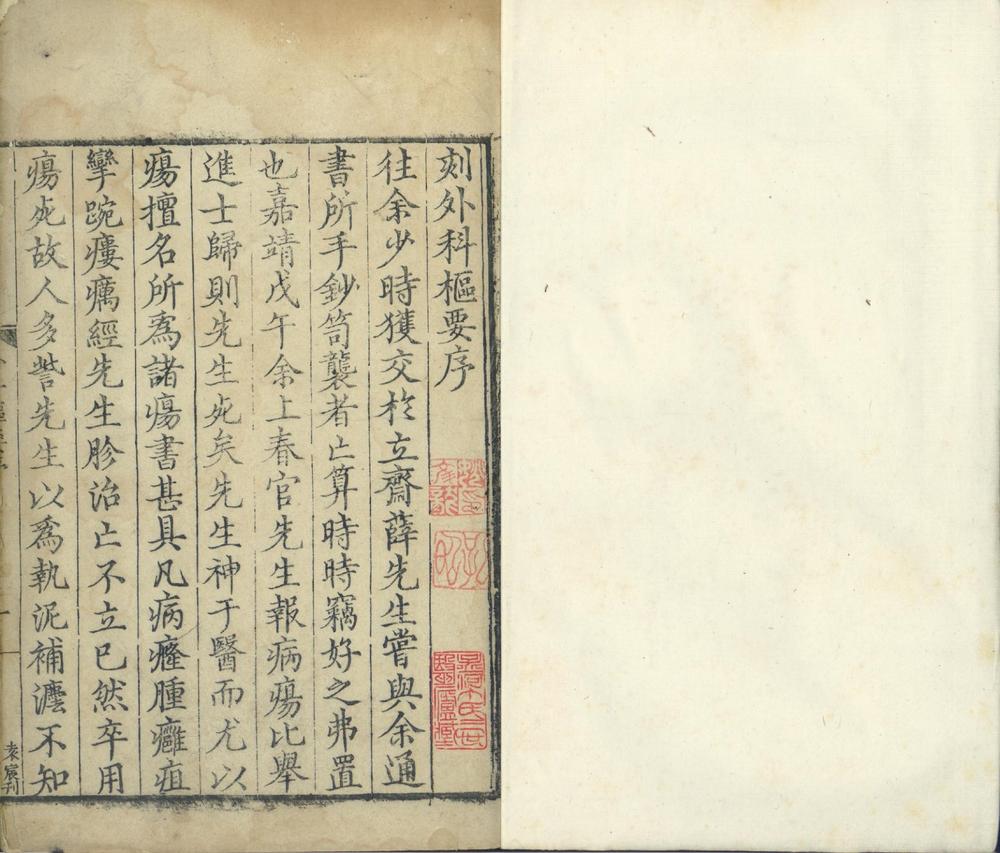 刻外科樞要序
往余少時獲交於立齋薛先生嘗與余通
書所手鈔笥襲者亡算時時竊好之弗置
也嘉靖戊午余上春官先生報病瘍比舉
進士歸則先生死矣先生神于醫而尤以
瘍擅名所爲諸瘍書甚具凡病癃腫癰疽
攣踠瘻癘經先生胗治亡不立已然卒用
瘍死故人多訾先生以爲執泥補瀘不知